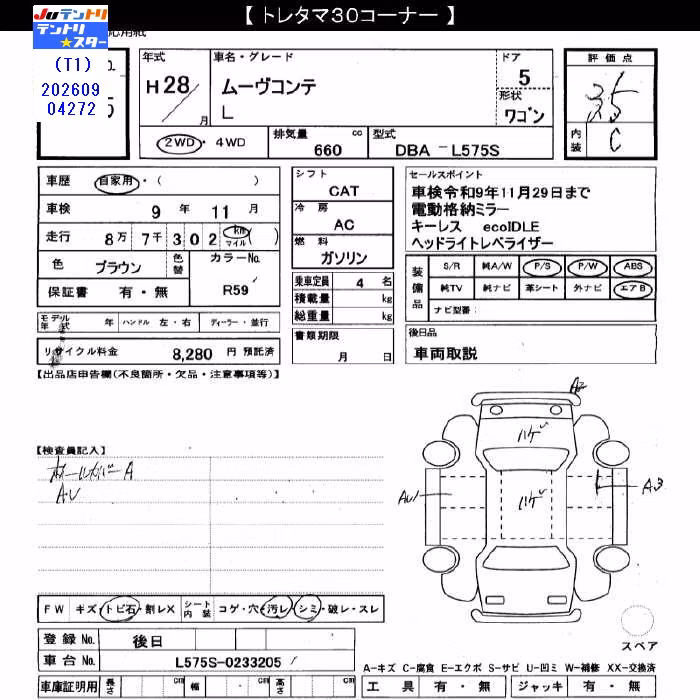 【 トレタマ30コーナー 】
JUテントリ
テントリ
★スター
応用紙
(T1)
202609
04272
年式
H28
月
車名・グレード
ムーヴコンテ
L
ドア
5
形状
ワゴン
評価点
3.5
内装
C
2WD・4WD
排気量 cc
660
型式
DBA - L575S
車歴 自家用・( )
車検 9年 11月
走行 8万 7千 302 km マイル ( )
色 ブラウン
色替
カラーNo.
R59
保証書 有・無
シフト
CAT
冷房
AC
燃料
ガソリン
乗車定員 4 名
積載量 kg
総重量 kg
書類期限
月 日
セールスポイント
車検令和9年11月29日まで
電動格納ミラー
キーレス ecoIDLE
ヘッドライトレベライザー
装備品
S/R 純A/W P/S P/W ABS
純TV 純ナビ 革シート 外ナビ エアB
ナビ型番:
後日品
車両取説
モデル年式 年 ハンドル 左・右 ディーラー・並行
リサイクル料金 8,280 円 預託済
【出品店申告欄(不良箇所・欠品・注意事項等)】
【検査員記入】
ホールカバーA
AU
A2
ハゲ
ハゲ
AU1
A3
FW キズ・トビ石・割レX
シート内装 コゲ・穴・汚レ・シミ・破レ・スレ
登録No. 後日
車台No. L575S-0233205
車庫証明用 長さ cm 幅 cm 高さ cm
スペア
A-キズ C-腐食 E-エクボ S-サビ U-凹ミ W-補修 XX-交換済
工具 有・無 ジャッキ 有・無